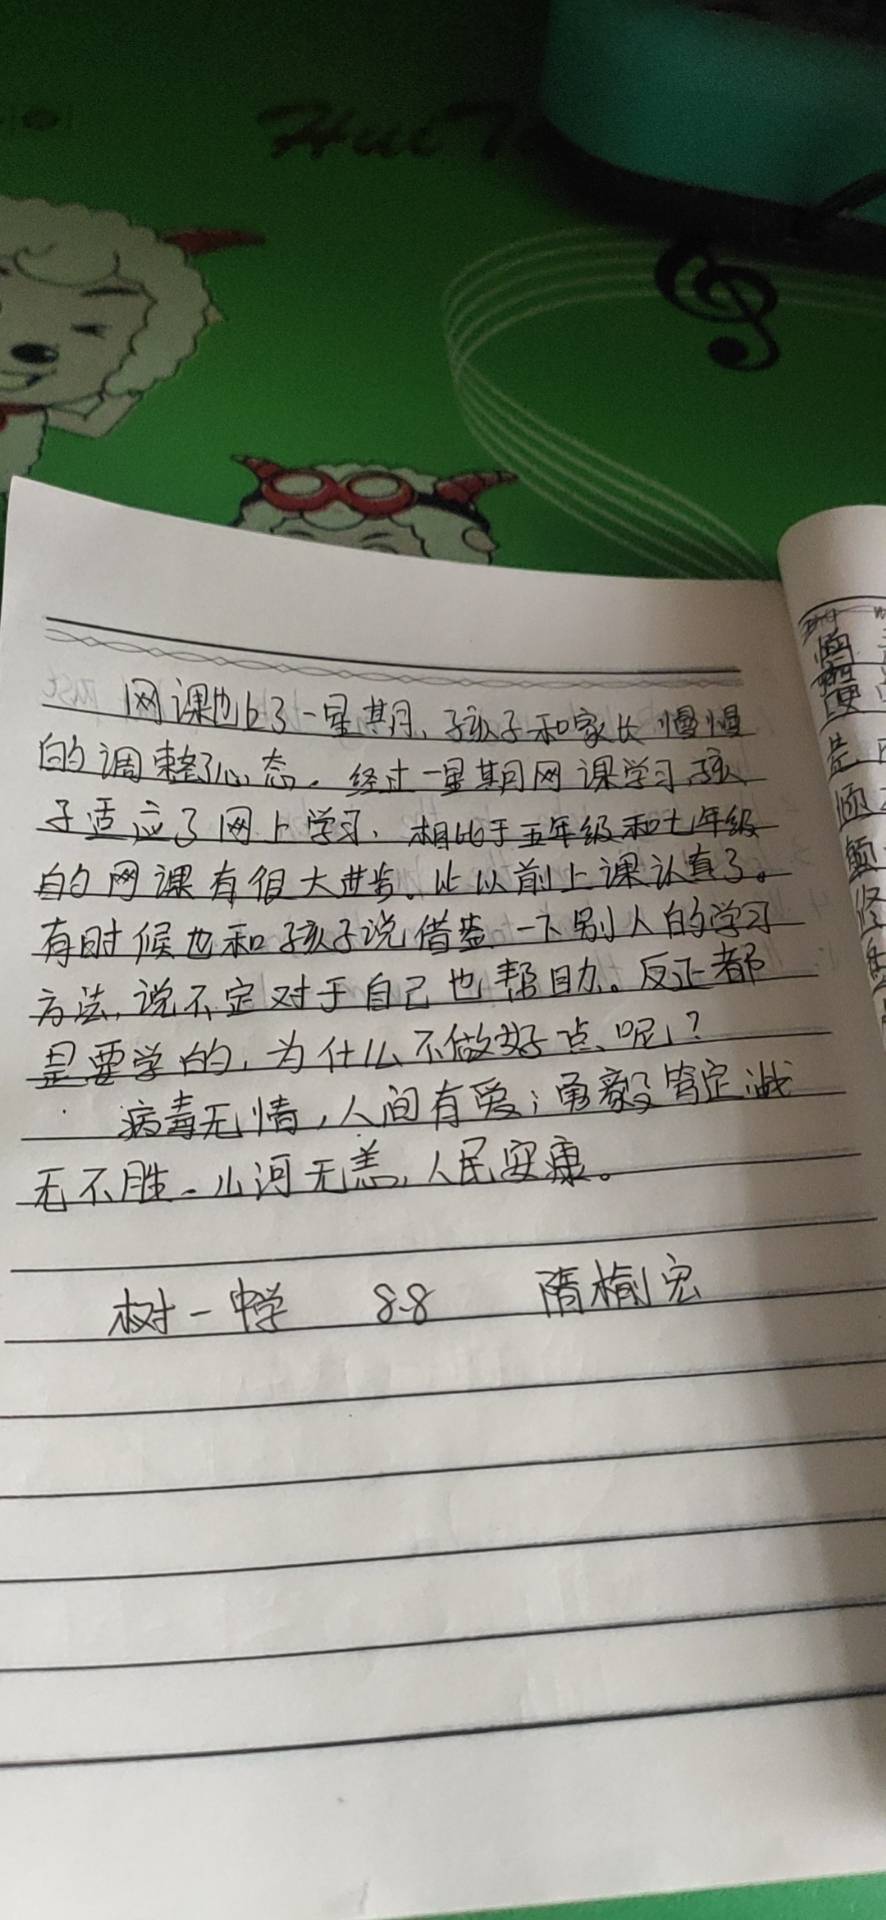 Hui
网课也上了一星期,孩子和家长慢慢
的调整了心态。经过一星期网课学习,孩
子适应了网上学习,相比于五年级和七年级
的网课有很大进步。比以前上课认真了。
有时候也和孩子说借鉴一下别人的学习
方法,说不定对于自己也帮助。反正都
是要学的,为什么不做好点呢?
病毒无情,人间有爱;勇毅笃定,战
无不胜。山河无恙,人民安康。
树一中学 8.8 隋榆宏